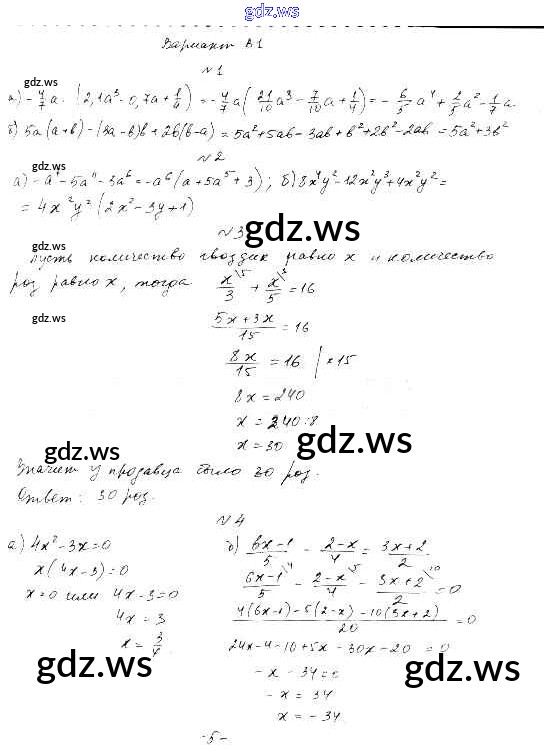 gdz.ws
Вариант В1
gdz.ws
№1
а) -4/7 a · (2,1a³ - 0,7a + 1/4) = -4/7 a (21/10 a³ - 7/10 a + 1/4) = -6/5 a⁴ + 2/5 a² - 1/7 a.
б) 5a(a+b) - (3a-b)b + 2b(b-a) = 5a² + 5ab - 3ab + b² + 2b² - 2ab = 5a² + 3b²
gdz.ws
№2
= 4x²y²(2x² - 3y + 1)
gdz.ws
№3
gdz.ws
Пусть количество гвоздик равно x и количество
роз равно x, тогда x/3 \5 + x/5 \3 = 16
gdz.ws
(5x + 3x)/15 = 16
8x/15 = 16 | × 15
8x = 240
x = 240:8
x = 30
gdz.ws
gdz.ws
Значит у продавца было 30 роз.
Ответ: 30 роз.
№4
а) 4x² - 3x = 0
x(4x - 3) = 0
x = 0 или 4x - 3 = 0
4x = 3
x = 3/4.
б) (6x-1)/5 - (2-x)/4 = (3x+2)/2
(6x-1)/5 \4 - (2-x)/4 \5 - (3x+2)/2 \10 = 0
(4(6x-1) - 5(2-x) - 10(3x+2))/20 = 0
24x - 4 - 10 + 5x - 30x - 20 = 0
- x - 34 = 0
- x = 34
x = - 34
gdz.ws
gdz.ws
-5-
gdz.ws